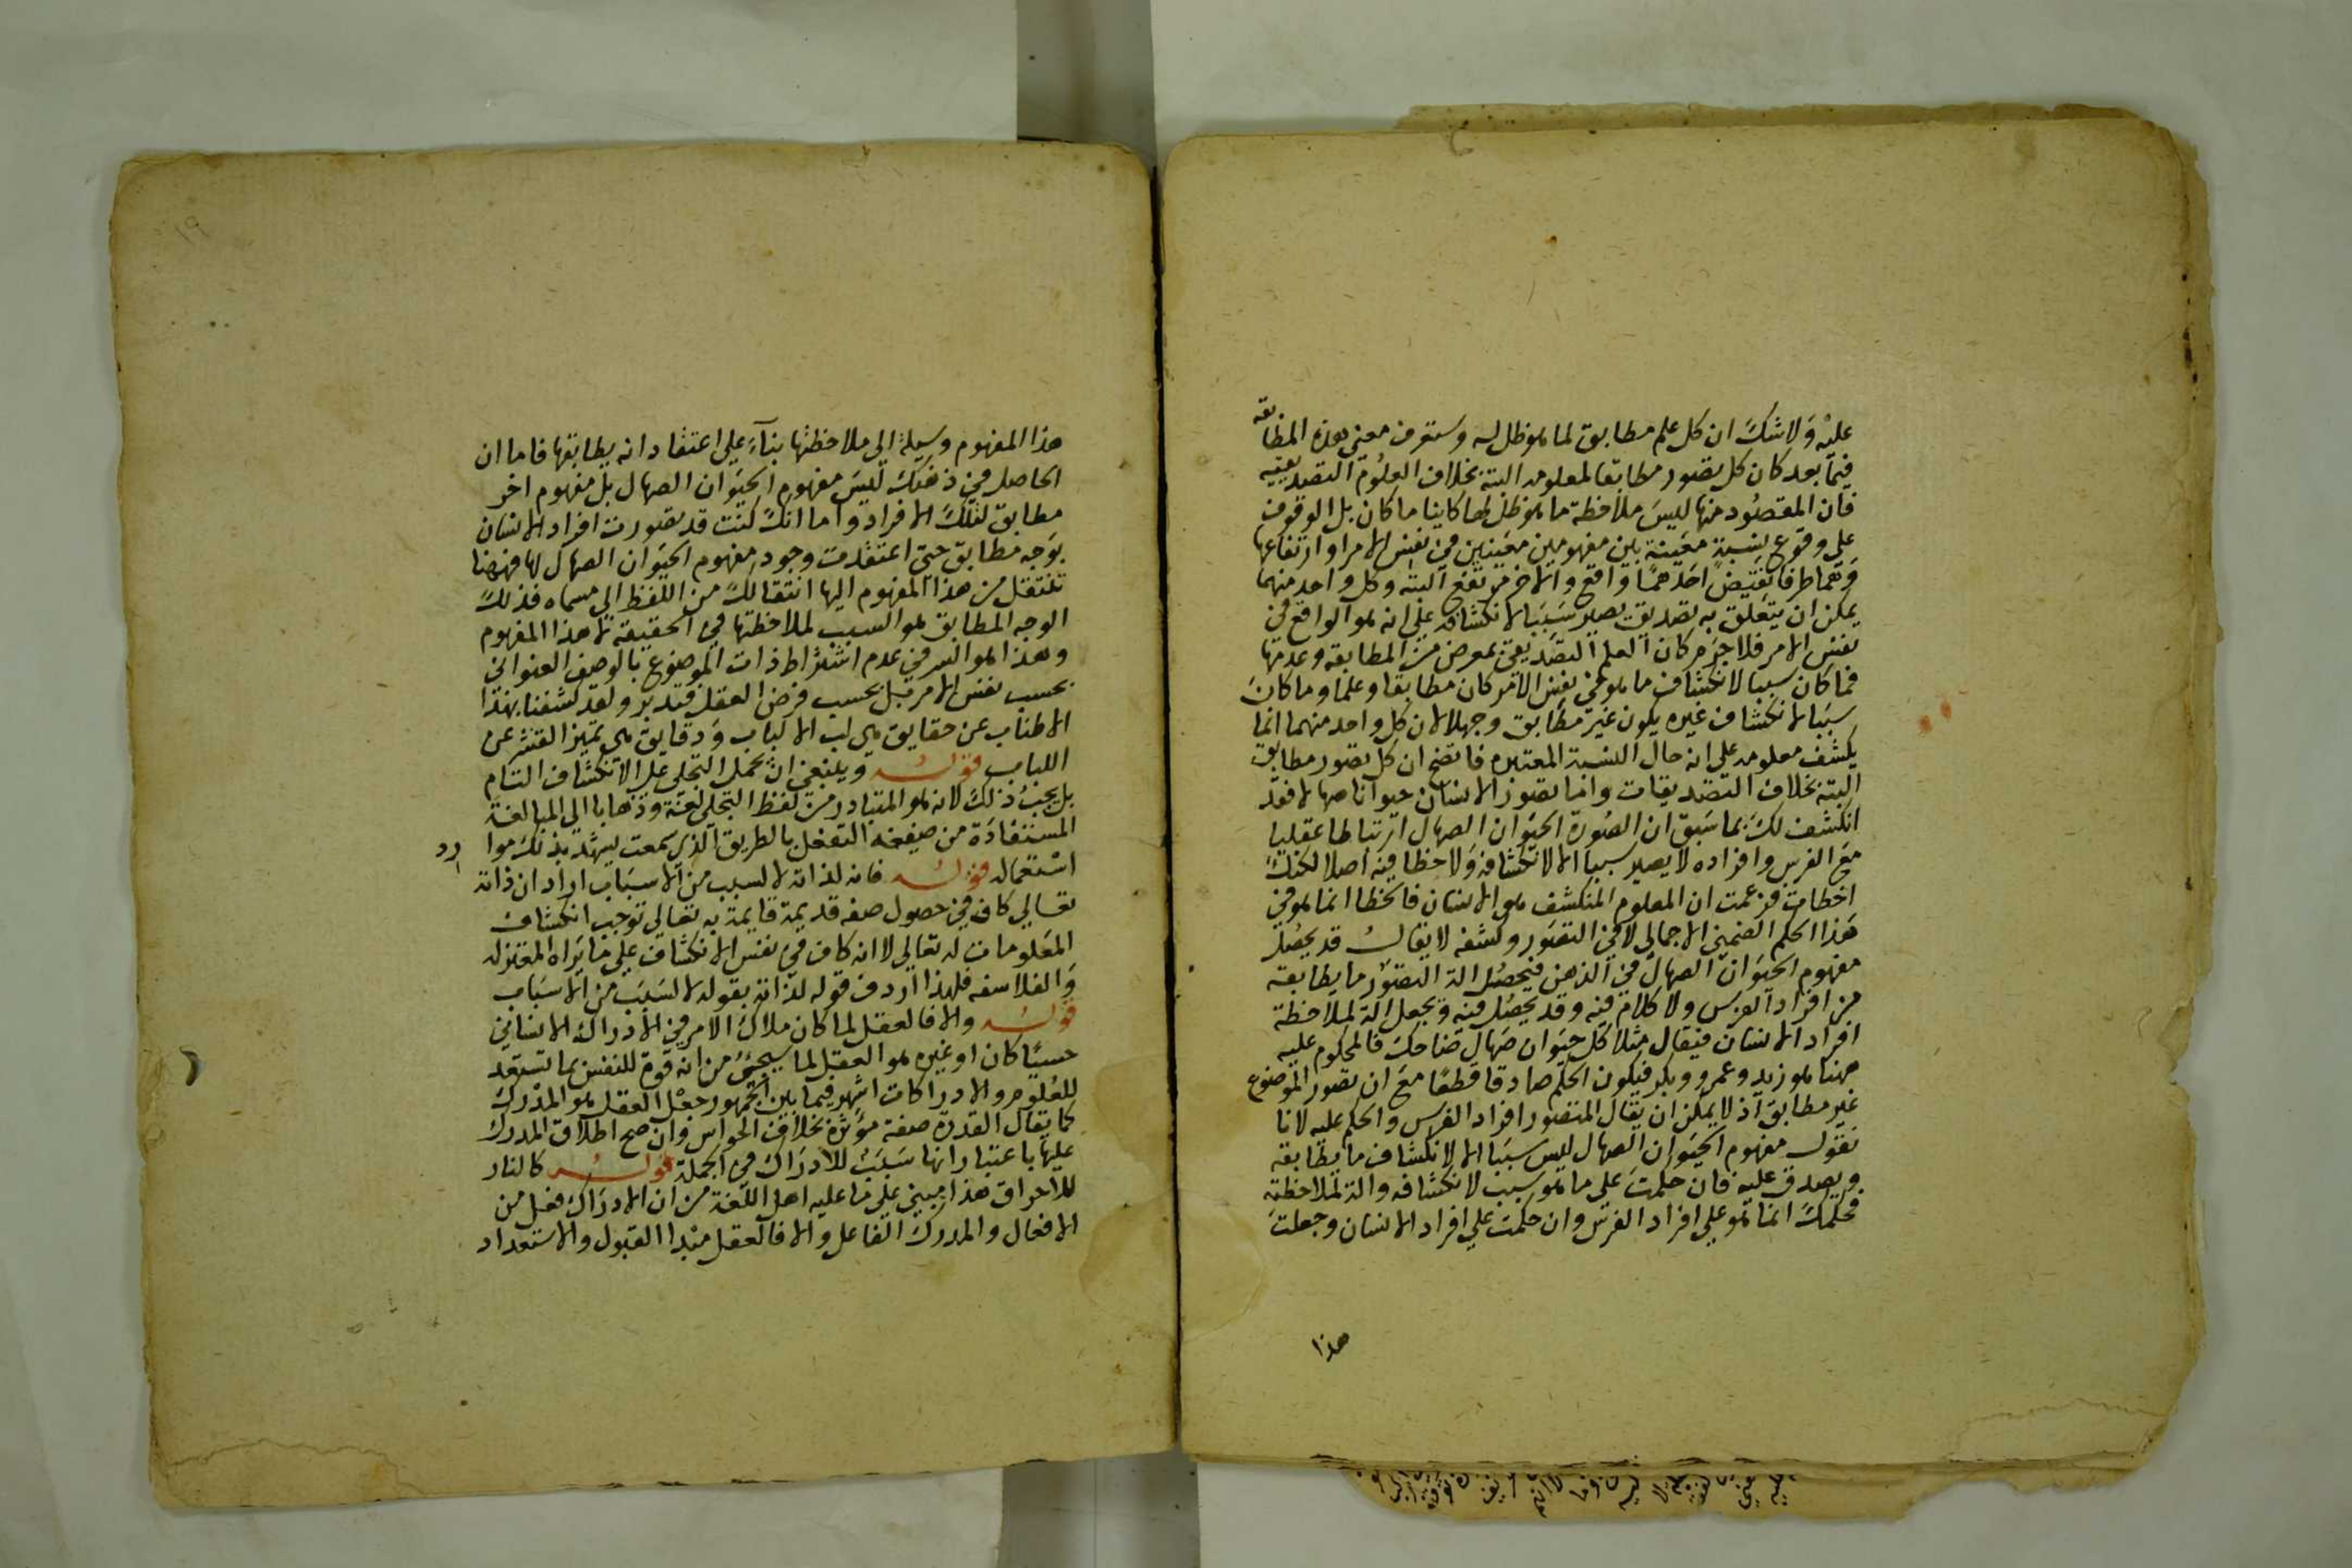 عليه ولا شك ان كل علم مطابق لما هو ظل له وستعرف معنى هذه المطابقة
فيما بعد كان كل تصور مطابقا لمعلومه البتة بخلاف العلوم التصديقية
فان المقصود منها ليس ملاحظة ما هو ظل لها كاينا ما كان بل الوقوف
على وقوع نسبة معينة بين مفهومين معينين في نفس الامر او ارتفاعها
وهما طرفا نقيض احدهما واقع والاخر مرتفع البتة وكل واحد منهما
يمكن ان يتعلق به تصديق يصير سببا لانكشافه على انه هو الواقع في
نفس الامر فلا جرم كان العلم التصديقي بمعرض من المطابقة وعدمها
فما كان سببا لانكشاف ما هو في نفس الامر كان مطابقا وعلما وما كان
سببا لانكشاف غيره يكون غير مطابق وجهلا لان كل واحد منهما انما
يكشف معلومه على انه حال النسبة المعتبرة فاتضح ان كل تصور مطابق
البتة بخلاف التصديقات واما تصور الانسان حيوانا صهالا فقد
انكشف لك بما سبق ان الصورة الحيوان الصهال ارتباطا عقليا
مع الفرس وافراده لا يصير سببا الا لانكشافه ولا خطا فيه اصلا لكنك
اخطات فزعمت ان المعلوم المنكشف هو الانسان فالخطا انما هو في
هذا الحكم الضمني الاجمالي لا في التصور وكشفه لا يقال قد يحصل
مفهوم الحيوان الصهال في الذهن فيحصل الة لتصور ما يطابقه
من افراد الفرس ولا كلام فيه وقد يحصل فيه ويجعل الة لملاحظة
افراد الانسان فيقال مثلا كل حيوان صهال ضاحك فالمحكوم عليه
ههنا هو زيد وعمرو وبكر فيكون الحكم صادقا قطعا مع ان تصور الموضوع
غير مطابق اذ لا يمكن ان يقال المتصور افراد الفرس والحكم عليه لانا
نقول مفهوم الحيوان الصهال ليس سببا الا لانكشاف ما يطابقه
ويصدق عليه فان حكمت على ما هو سبب لانكشافه والة لملاحظته
فحكمك انما هو على افراد الفرس وان حكمت على افراد الانسان وجعلت
هذا
١٩
هذا المفهوم وسيلة الى ملاحظتها بناء على اعتقاد انه يطابقها فاما ان
الحاصل في ذهنك ليس مفهوم الحيوان الصهال بل مفهوم اخر
مطابق لتلك الافراد واما انك كنت قد تصورت افراد الانسان
بوجه مطابق حتى اعتقدت وجود مفهوم الحيوان الصهال لها فههنا
تنتقل من هذا المفهوم اليها انتقالك من اللفظ الى مسماه فذلك
الوجه المطابق هو السبب لملاحظتها في الحقيقة لا هذا المفهوم
وهذا هو السر في عدم اشتراط ذات الموضوع بالوصف العنواني
بحسب نفس الامر بل بحسب فرض العقل فتدبر ولقد كشفنا بهذا
الاطناب عن حقايق هي لب الالباب ودقايق هي تميز القشر عن
اللباب قوله وينبغي ان يحمل التجلي على الانكشاف التام
بل يجب ذلك لانه هو المتبادر من لفظ التجلي لغة وذهابا الى المبالغة
المستفادة من صيغة التفعل بالطريق الذي سمعت يشهد بذلك موا
رد
استعماله قوله فانه لذاته لا لسبب من الاسباب اراد ان ذاته
تعالى كاف في حصول صفة قديمة قايمة به تعالى توجب انكشاف
المعلومات له تعالى لا انه كاف في نفس الانكشاف على ما يراه المعتزله
والفلاسفه فلهذا اردف قوله لذاته بقوله لا لسبب من الاسباب
قوله والا فالعقل لما كان ملاك الامر في الادراك الانساني
حسيا كان او غيره هو العقل لما سيجئ من انه قوة للنفس بها تستعد
للعلوم والادراكات اشتهر فيما بين الجمهور جعل العقل هو المدرك
كما يقال القدرة صفة مؤثرة بخلاف الحواس وان صح اطلاق المدرك
عليها باعتبار انها سبب للادراك في الجملة قوله كالنار
للاحراق هذا مبني على ما عليه اهل اللغة من ان الادراك فعل من
الافعال والمدرك الفاعل والا فالعقل مبدا القبول والاستعداد